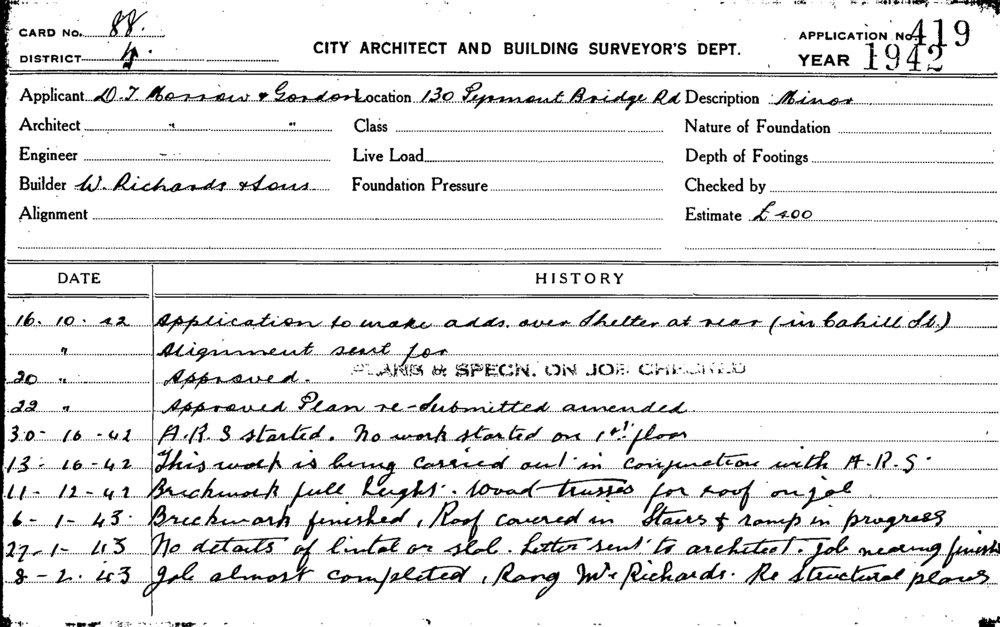 CARD No. 88.
DISTRICT 4.
CITY ARCHITECT AND BUILDING SURVEYOR'S DEPT.
APPLICATION No. 419
YEAR 1942
Applicant D. T. Morrow & Gordon Location 130 Pyrmont Bridge Rd Description Minor
Architect " " Class Nature of Foundation
Engineer Live Load Depth of Footings
Builder W. Richards & Sons Foundation Pressure Checked by
Alignment Estimate £400
DATE HISTORY
16. 10. 42 Application to make adds. over Shelter at rear (in Cahill St.)
" Alignment sent for
20 " Approved. PLANS & SPECN. ON JOB CHECKED
22 " Approved Plan re-submitted amended.
30- 10 -42 A.R.S started. No work started on 1st floor
13- -42 This work is being carried out in conjunction with A.R.S.
11- 12-42 Brickwork full height. Wood trusses for roof on job
6-1-43. Brickwork finished, Roof covered in Stairs & ramp in progress
27-1-43 No details of lintol or slab. Letter sent to architect. Job nearing finish
8-2.43 Job almost completed, Rang Mr Richards. Re Structural plans